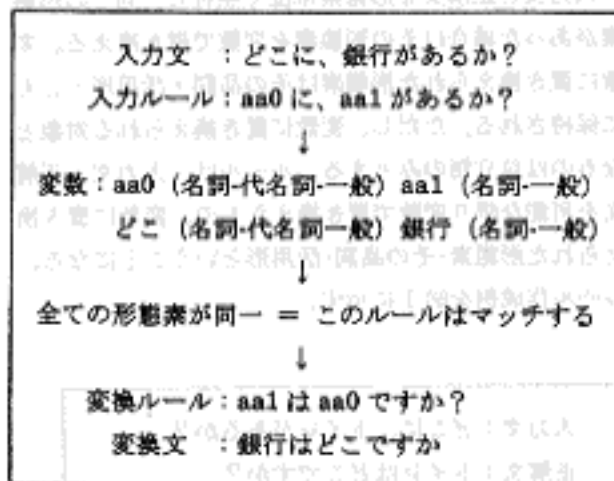 入力文　：どこに、銀行があるか？
入力ルール：aa0 に、aa1 があるか？
↓
変数：aa0（名詞-代名詞-一般）aa1（名詞-一般）
どこ（名詞-代名詞一般）銀行（名詞-一般）
↓
全ての形態素が同一 ＝ このルールはマッチする
↓
変換ルール：aa1 は aa0 ですか？
変換文　：銀行はどこですか